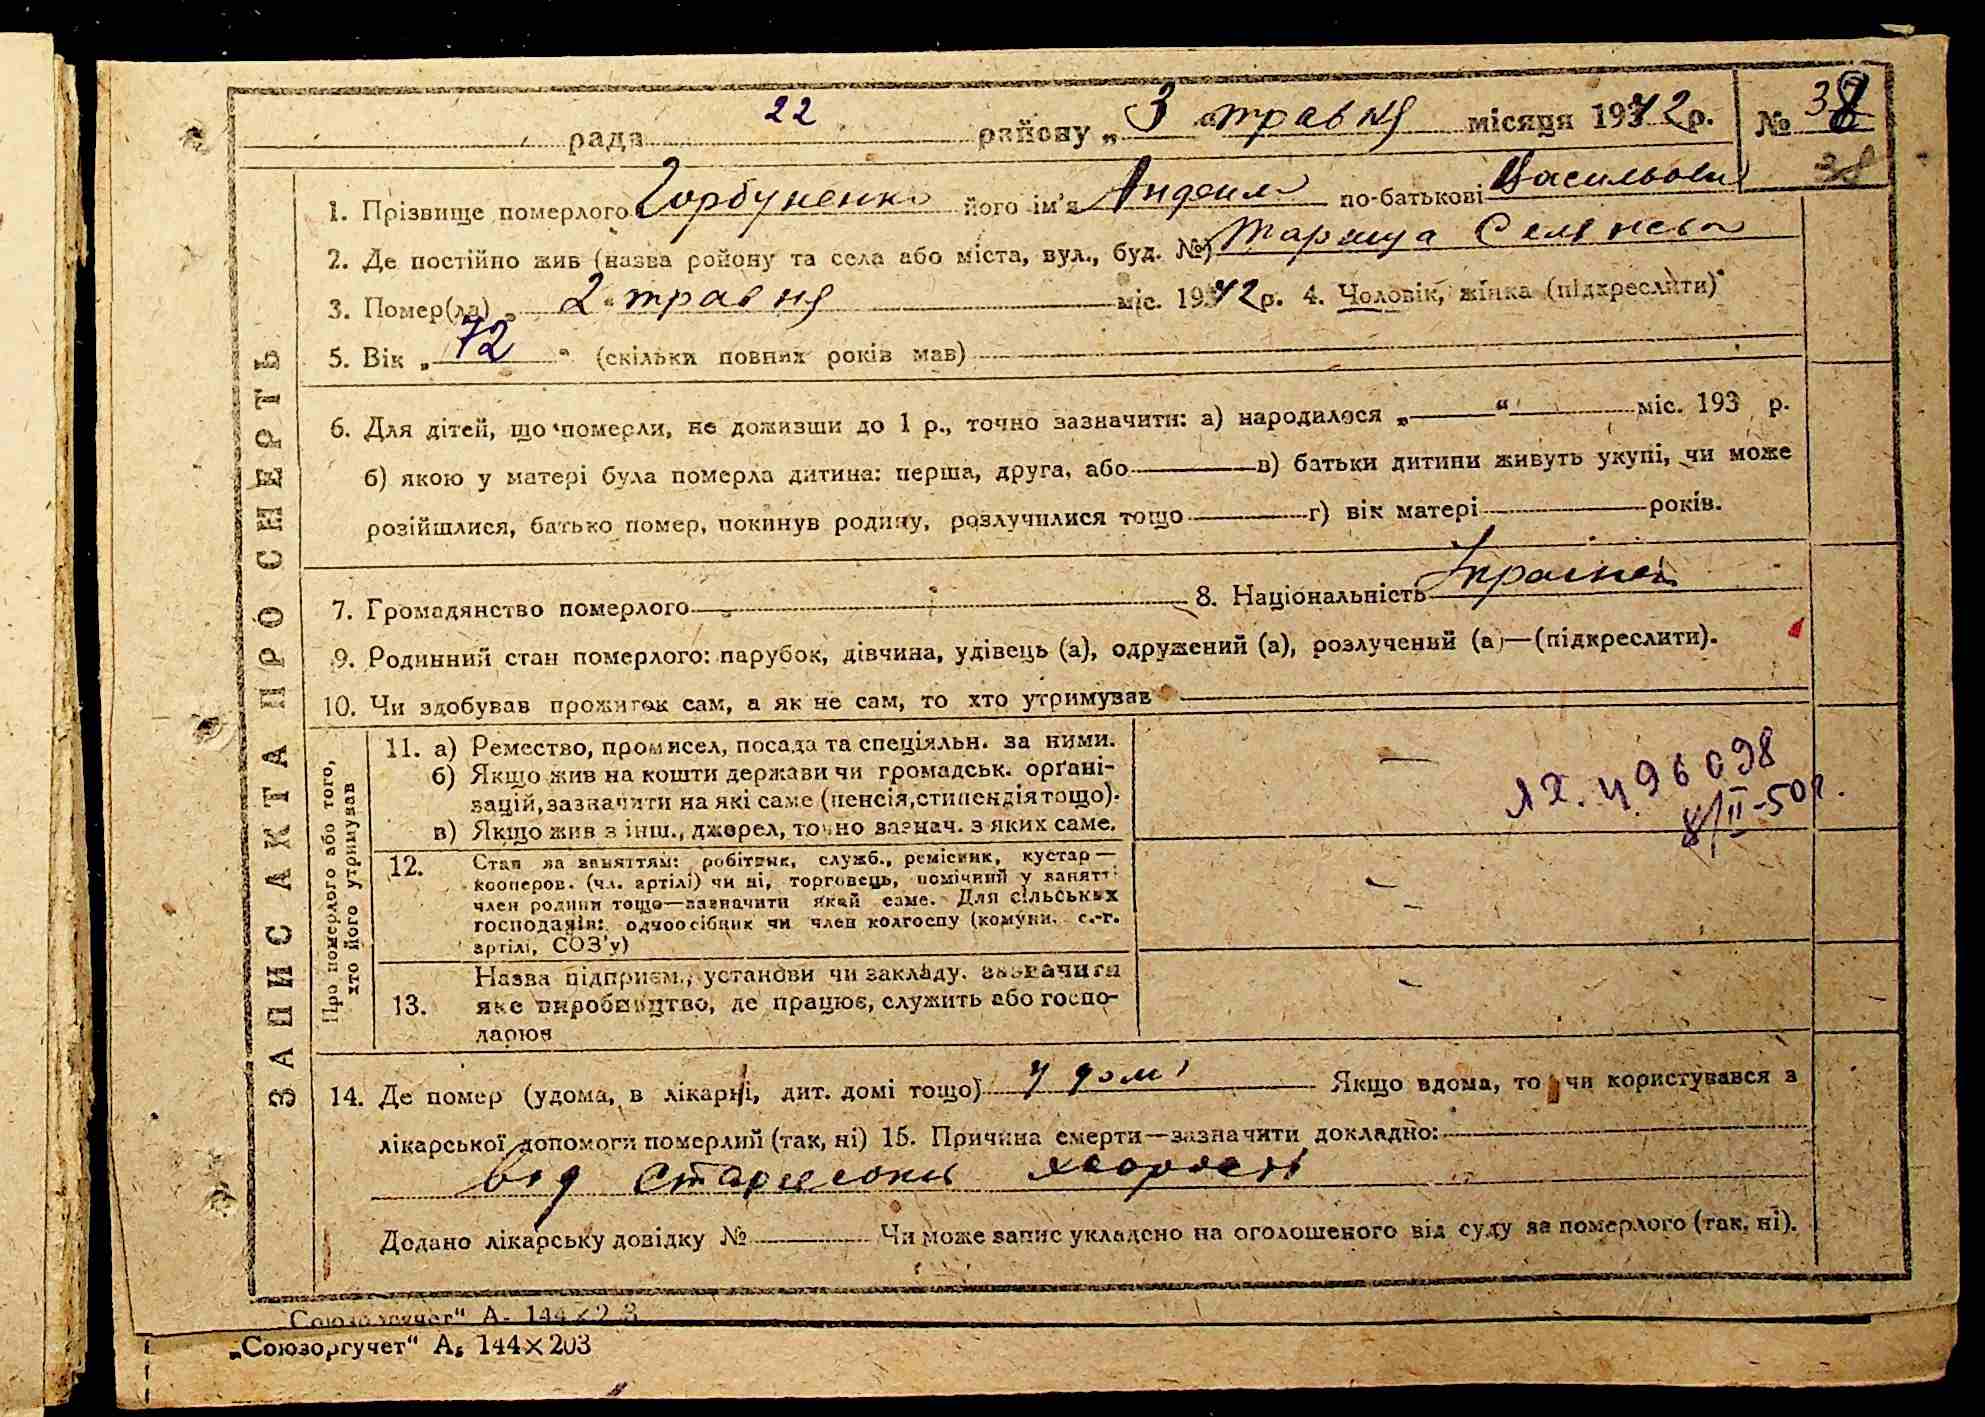 22
рада району „ 3 " травня місяця 1942 р. № 38
38
1. Прізвище померлого Горбуненко його ім'я по-батькові
2. Де постійно жив (назва району та села або міста, вул., буд. №) Тараща
3. Помер(ла) „ 2 " травня міс. 1942 р. 4. Чоловік, жінка (підкреслити)
5. Вік „ 72 " (скільки повних років мав)
6. Для дітей, що померли, не доживши до 1 р., точно зазначити: а) народилося „ " міс. 193 р.
б) якою у матері була померла дитина: перша, друга, або в) батьки дитини живуть укупі, чи може
розійшлися, батько помер, покинув родину, розлучилися тощо г) вік матері років.
7. Громадянство померлого 8. Національність
9. Родинний стан померлого: парубок, дівчина, удівець (а), одружений (а), розлучений (а)—(підкреслити).
10. Чи здобував прожиток сам, а як не сам, то хто утримував
ЗАПИС АКТА ПРО СМЕРТЬ
Про померлого або того,
хто його утримував
11. а) Ремество, промисел, посада та спеціяльн. за ними.
б) Якщо жив на кошти держави чи громадськ. орґані-
зацій, зазначити на які саме (пенсія, стипендія тощо).
в) Якщо жив з інш., джерел, точно зазнач. з яких саме.
ЛХ. 496098
8/II-50г.
12. Стан за заняттям: робітник, служб., ремісник, кустар —
кооперов. (чл. артілі) чи ні, торговець, помічний у занятті
член родини тощо—зазначити який саме. Для сільських
господарів: одноосібник чи член колгоспу (комуни, с.-г.
артілі, СОЗ'у)
13. Назва підприєм., установи чи закладу. зазначити
яке виробництво, де працює, служить або госпо-
дарює
14. Де помер (удома, в лікарні, дит. домі тощо) у домі Якщо вдома, то чи користувався з
лікарської допомоги померлий (так, ні) 15. Причина смерти—зазначити докладно:
від
Додано лікарську довідку № Чи може запис укладено на оголошеного від суду за померлого (так, ні).
„Союзоргучет" А. 144×203
„Союзоргучет" А5 144×203